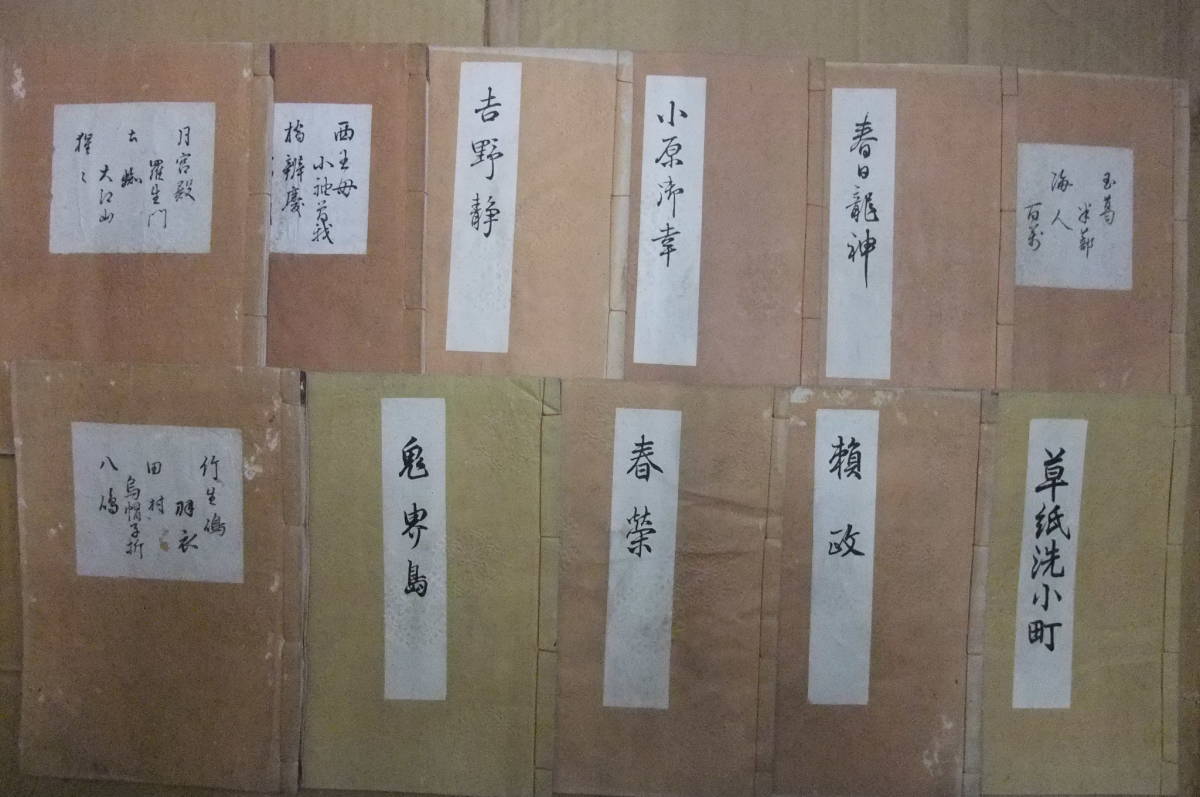 月宮殿
羅生門
土蜘
大江山
猩々
西王母
小袖曽我
橋辨慶
吉野静
小原御幸
春日龍神
玉葛
海人
百萬
竹生嶋
羽衣
田村
烏帽子折
八嶋
鬼界島
春榮
頼政
草紙洗小町